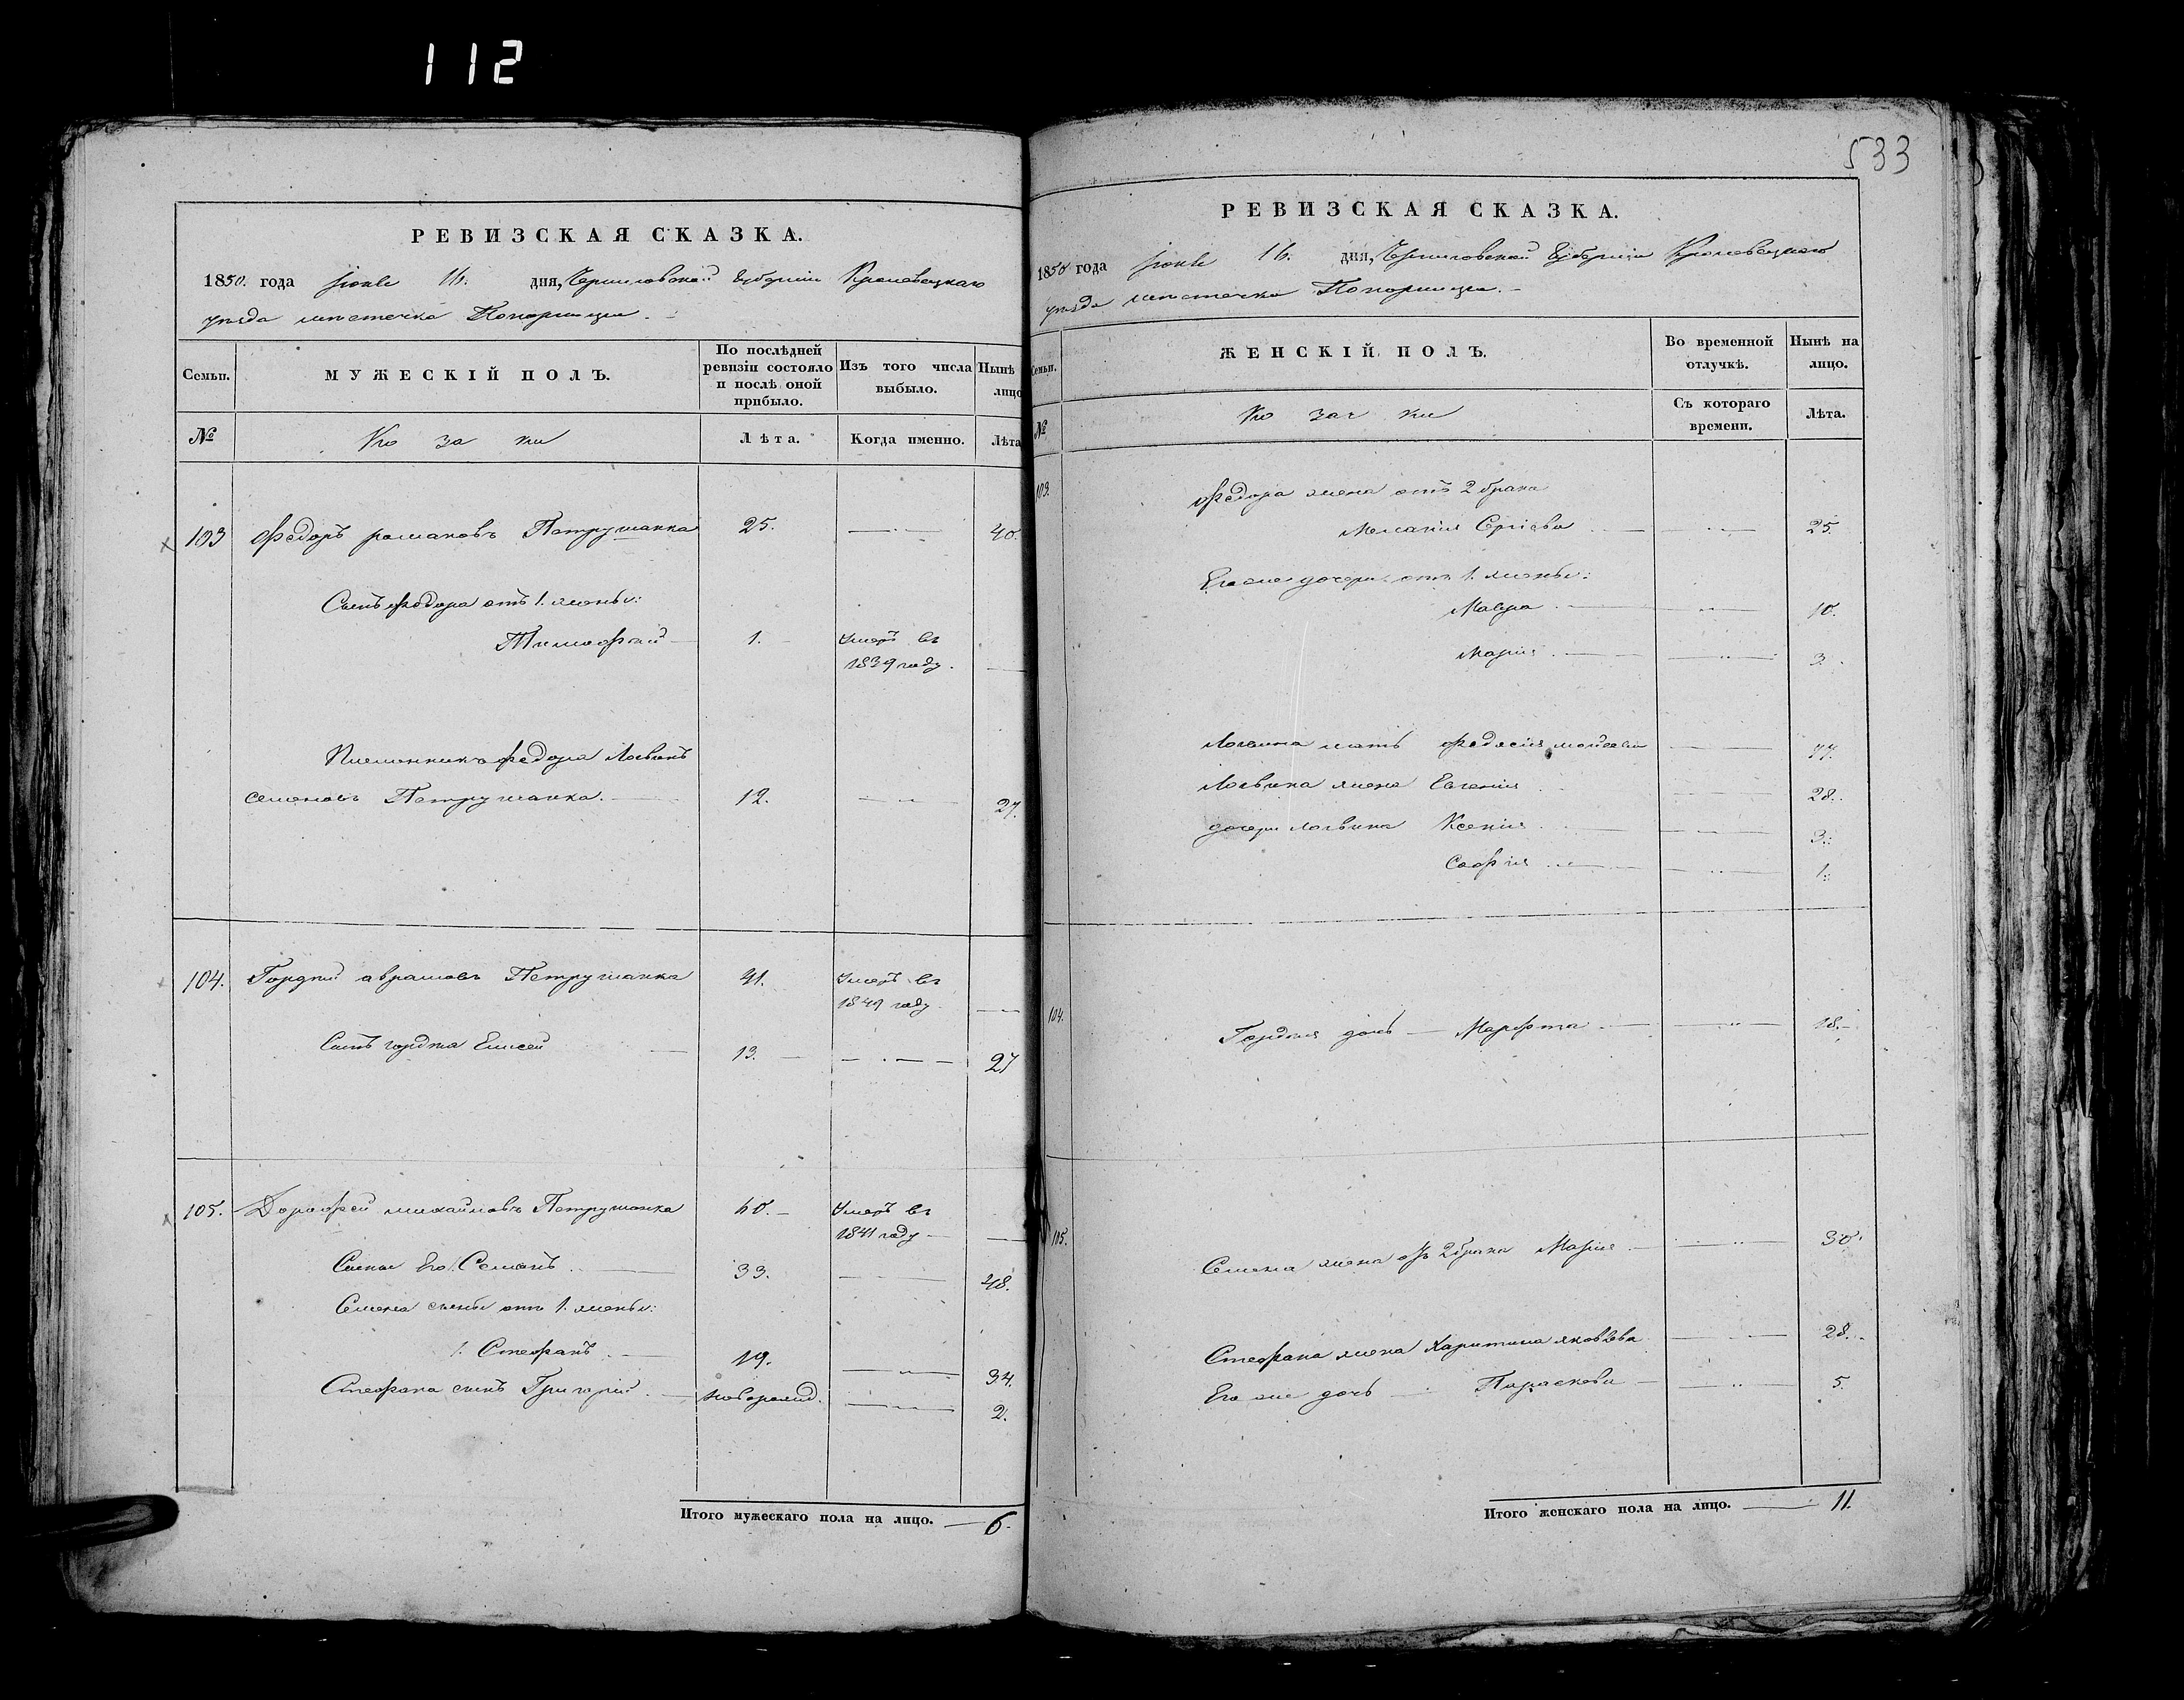 112
533
РЕВИЗСКАЯ СКАЗКА.
1850. года Іюнь 16. дня, Черниговской Губерніи Кролевецкаго
уезда местечка Понорницы. –
Семьи.
МУЖЕСКІЙ ПОЛЪ.
По послѣдней ревизіи состояло и послѣ оной прибыло.
Изъ того числа выбыло.
Нынѣ лицо
№
Ко за ки
Лѣта.
Когда именно.
Лѣта
103 Федоръ романовъ Петрушанка 25. — 40.
Сынъ федора отъ 1. жены:
Тимофей 1. – Умеръ въ
1839 году. —
Племенникъ федора Логвинъ
семеновъ Петрушанка. — 12. — 27.
104. Гордѣй аврамовъ Петрушанка 41. Умеръ въ
1849 году. —
Сынъ гордѣя Елисей — 13. — 27
105. Дорофей михайловъ Петрушанка 60. – Умеръ въ
1841 году – —
Сынъ Его Семенъ. — 33. — 48.
Семена сыны отъ 1. жены:
1. Стефанъ. — 19. — 34.
Стефана сынъ Григорій. — новорожд. — 2.
Итого мужескаго пола на лицо. — 6.
РЕВИЗСКАЯ СКАЗКА.
1850 года Іюнь 16. дня, Черниговской Губерніи Кролевецкаго
уезда местечка Понорницы. –
Семьи.
ЖЕНСКІЙ ПОЛЪ.
Во временной отлучкѣ.
Нынѣ на лицо.
№
Ко зач ки
Съ котораго времени.
Лѣта.
103. Федора жена отъ 2 брака
Мелания Сергіева — 25.
Его же дочери отъ 1. жены:
Мавра — 10.
Марія — 3.
Логвина мать Федосія мойсеева —
Логвина жена Евгенія — 28.
дочери логвина Ксенія — 3.
Софія — 1.
104. Гордея дочь — Марфта — 18. –
105. Семена жена отъ 2 брака Марія — 30.
Стефана жена Харитина яковлева — 28.
Его же дочь — Параскева — 5.
Итого женскаго пола на лицо. — 11.